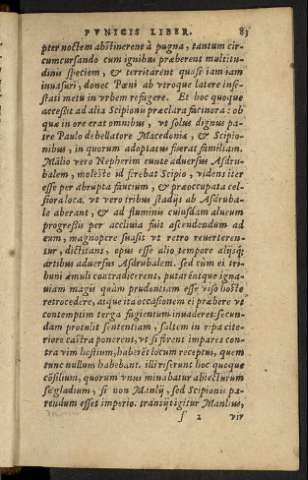 PVNICIS LIBER. 83
pter noctem abstinerent à pugna, tantum cir-
cumcursando cum ignibus præberent multitu-
dinis speciem, & territarent quasi iam iam
inuasuri, donec Pœni ab vtroque latere infe-
stati metu in vrbem refugere. Et hoc quoque
accessit ad alia Scipionis præclara facinora: ob
que in ore erat omnibus, vt solus dignus pa-
tre Paulo debellatore Macedonia, & Scipio-
nibus, in quorum adoptatus fuerat familiam.
Mālio vero Nepherim eunte aduersus Asdru-
balem, molestè id ferebat Scipio, videns iter
esse per abrupta faucium, & præoccupata cel-
siora loca. vt vero tribus stadijs ab Asdruba-
le aberant, & ad fluminis cuiusdam alueum
progressis per accliuia fuit ascendendum ad
eum, magnopere suasit vt retro reuerteren-
tur, dictitans, opus esse alio tempore alijsq;
artibus aduersus Asdrubalem. sed cùm ei tri-
buni æmuli contradicerent, putarêntque igna-
uiam magis quàm prudentiam esse viso hoste
retrocedere, atque ita occasionem ei præbere vt
contemptim terga fugientum inuaderet: secun-
dam protulit sententiam, saltem in ripa cite-
riore castra ponerent, vt si forent impares con-
tra vim hostium, haberēt locum receptus, quem
tunc nullum habebant. illi riserunt hoc quoque
cōsilium, quorum vnus minabatur abiecturum
se gladium, si non Manlij, sed Scipionis pa-
rendum esset imperio. transijt igitur Manlius,
f 2 vir